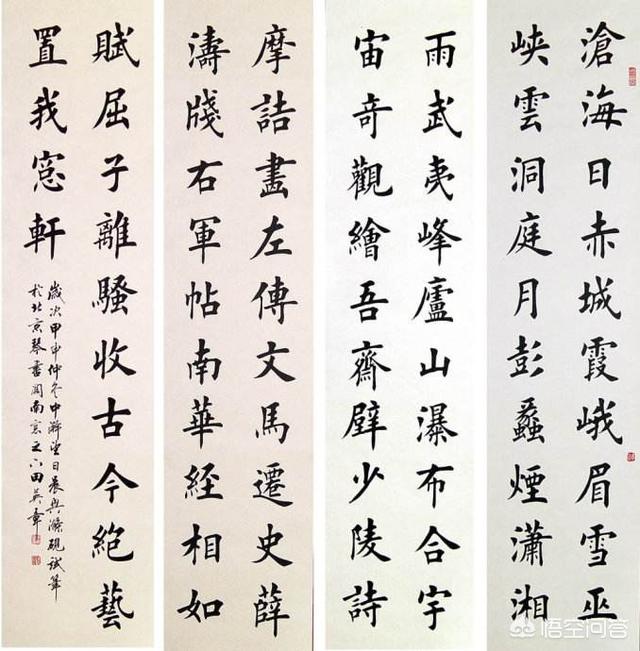 滄海日赤城霞峨眉雪巫
峽雲洞庭月彭蠡煙瀟湘
雨武夷峰廬山瀑布合宇
宙奇觀繪吾齋壁少陵詩
摩詰畫左傳文馬遷史薛
濤牋右軍帖南華經相如
賦屈子離騷收古今絕藝
置我窓軒
歲次甲申仲冬中澣望日晨興滌硯試筆
於北京琴書閣南窓之下田英章
悟空问答